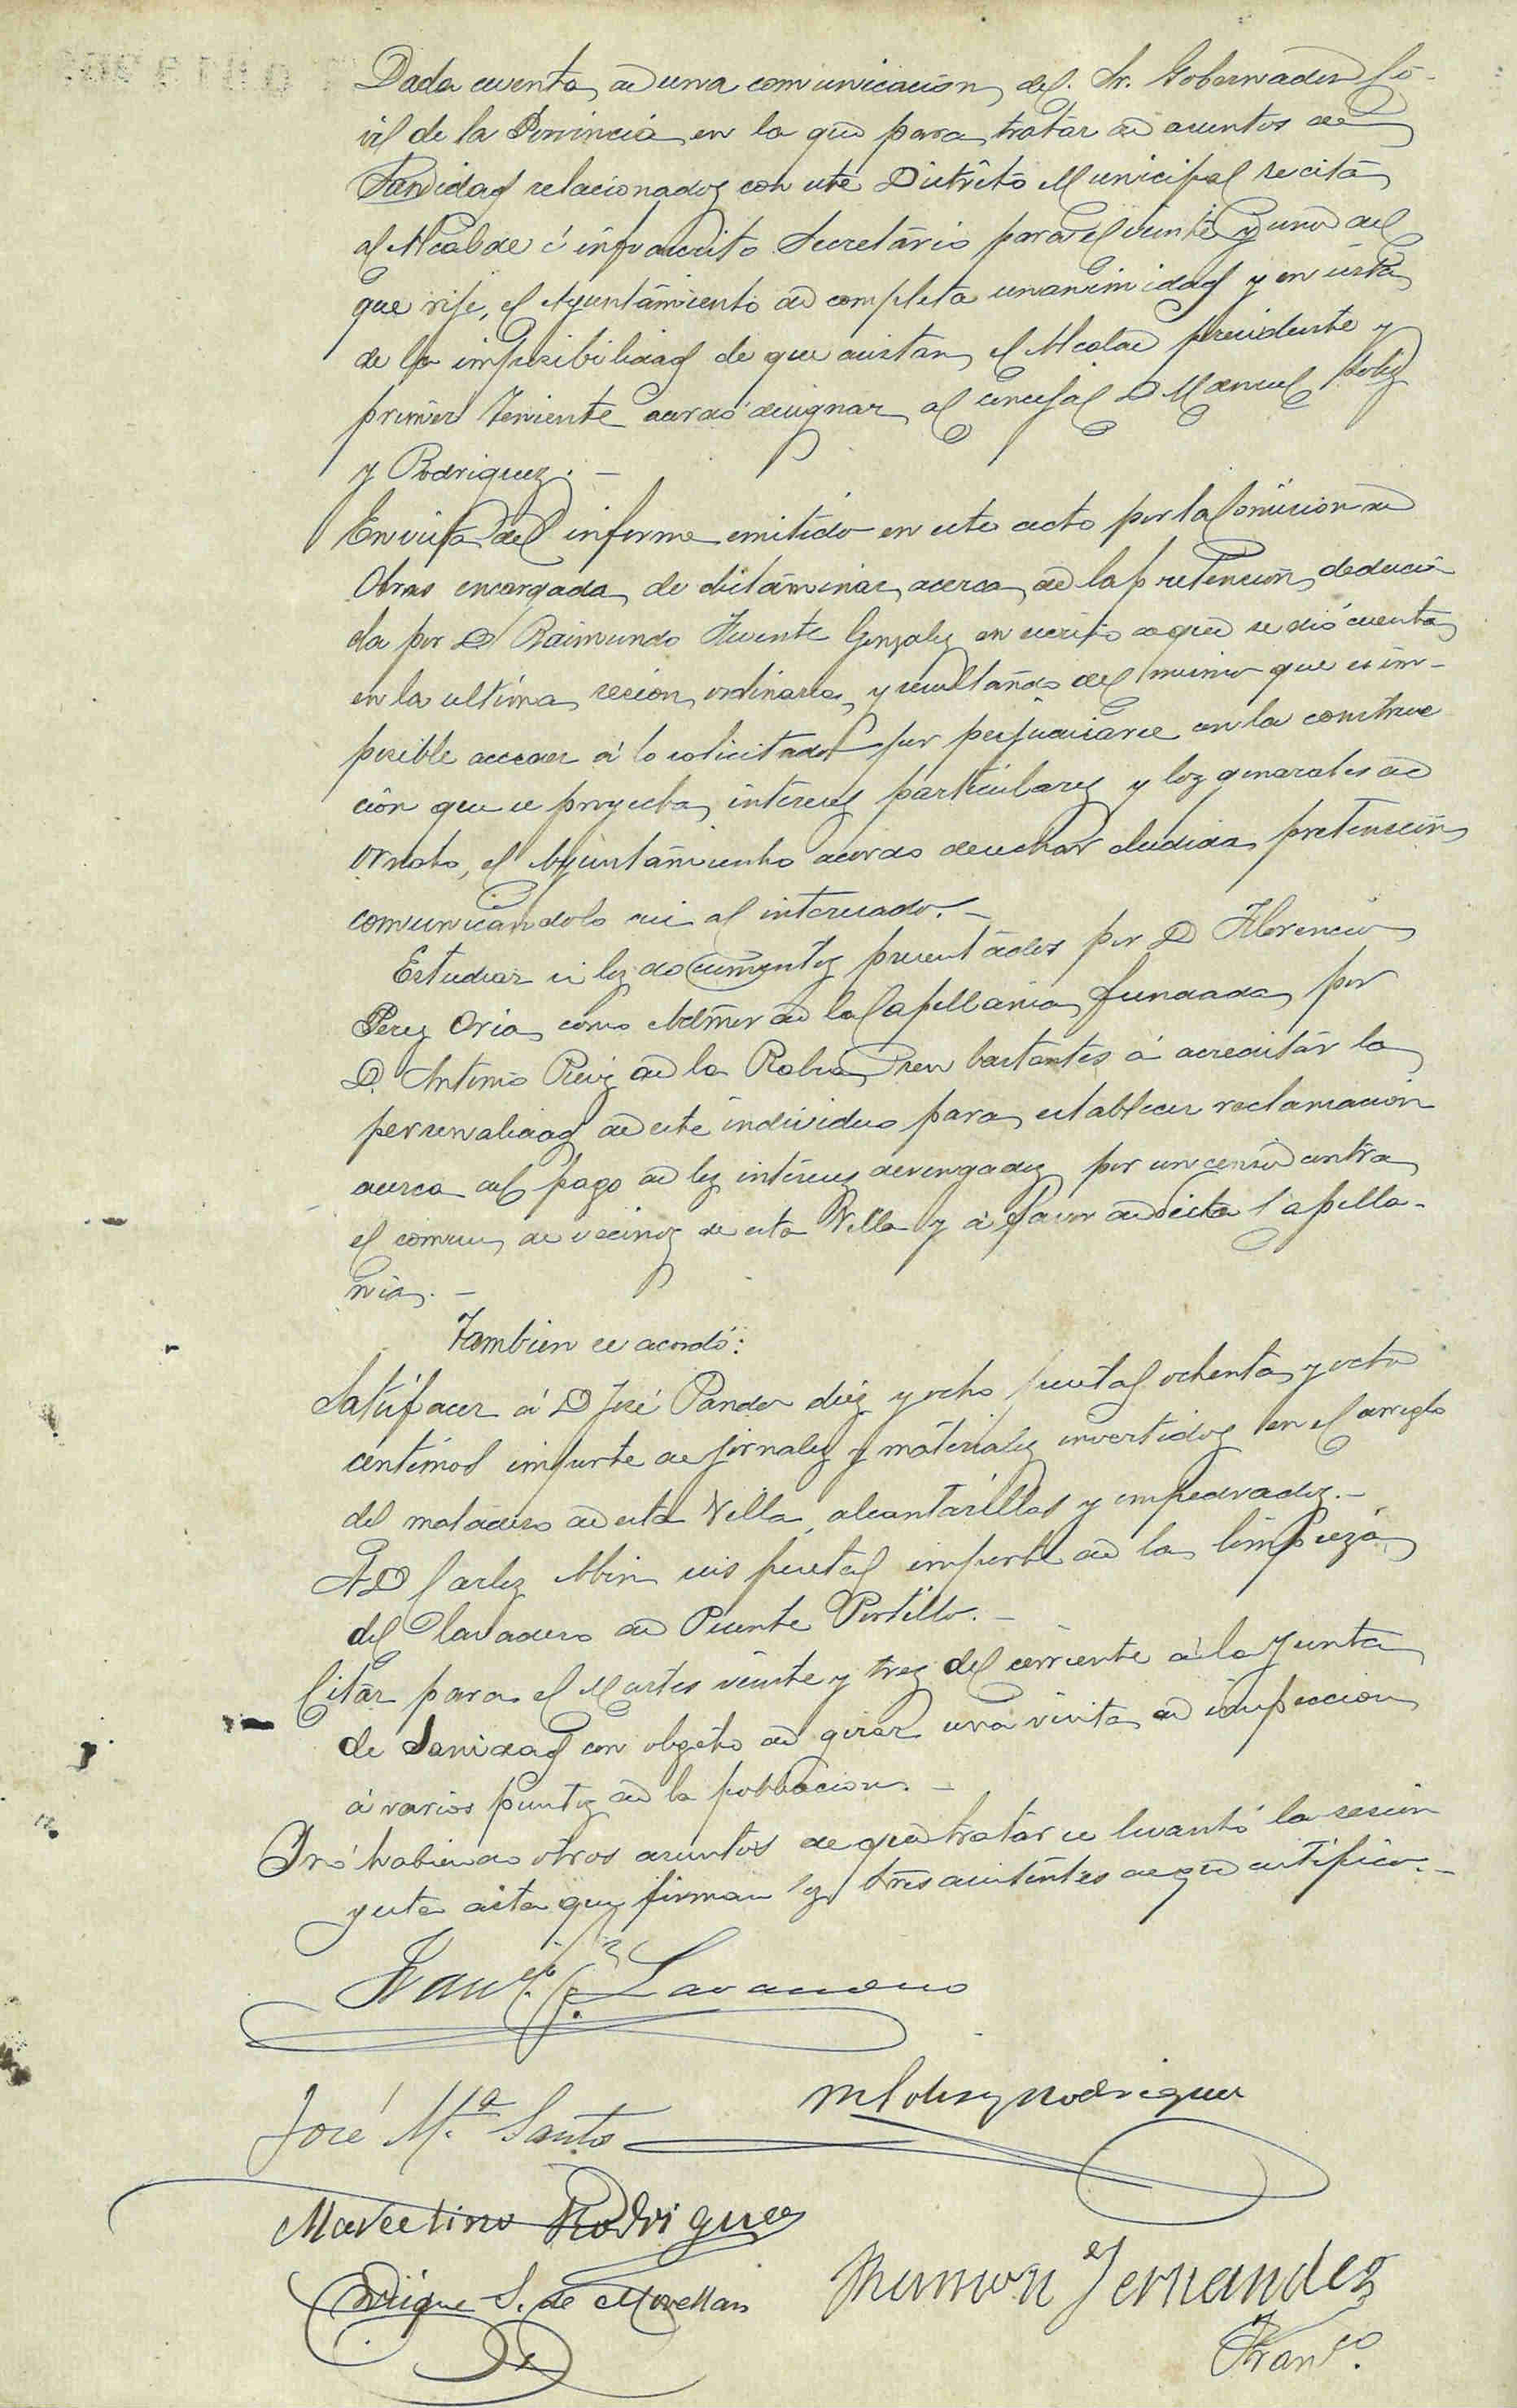 Dada cuenta de una comunicación del Sr. Gobernador Ci-
vil de la Provincia en la que para tratar de asuntos de
Sanidad relacionados con este Distrito Municipal se cita
al Alcalde é infrascrito Secretario para el veinte y uno del
que rije, el Ayuntamiento de completa unanimidad y en vista
de la imposibilidad de que asistan el Alcalde presidente y
primer Teniente acordó designar al concejal D Manuel Polez
y Rodriguez. —
En vista del informe emitido en este acto por la Comision de
Obras encargada de dictaminar acerca de la pretencion deduci-
da por D Raimundo Fuente Gonzalez en escrito de que se dió cuenta
en la ultima sesion ordinaria, y resultando del mismo que es im-
posible acceder á lo solicitado por perjudicarse en la construc
ción que se proyecta intereses particulares y los generales de
ornato, el Ayuntamiento acordó desechar aludida pretension
comunicandolo asi al interesado. —
Estudiar si los documentos presentados por D Florencio
Perez Oria como Admor de la Capellania fundada por
D. Antonio Ruiz de la Rabia son bastantes á acreditar la
personalidad de este individuo para establecer reclamacion
acerca del pago de los intereses devengados por un censo contra
el comun de vecinos de esta Villa y á favor de dicha Capella-
nia. —
Tambien se acordó:
Satisfacer á D José Pando diez y ocho pesetas ochenta y ocho
centimos importe de jornales y materiales invertidos en el arreglo
del matadero de esta Villa, alcantarillas y empedrados. —
A D Carlos Abin seis pesetas importe de la limpieza
del lavadero de Puente Portillo. —
Citar para el Martes veinte y tres del corriente á la Junta
de Sanidad con objeto de girar una visita de inspeccion
á varios puntos de la poblacion. —
Y nó habiendo otros asuntos de que tratar se levantó la sesion
y esta acta que firman los Sres asistentes de que certifico. —
Franco. G. Lavandero
José Ma. Santos
M Polez y Rodriguez
Marcelino Rodriguez
Enrique S. de Movellan
Ramon Fernandez
Franco.